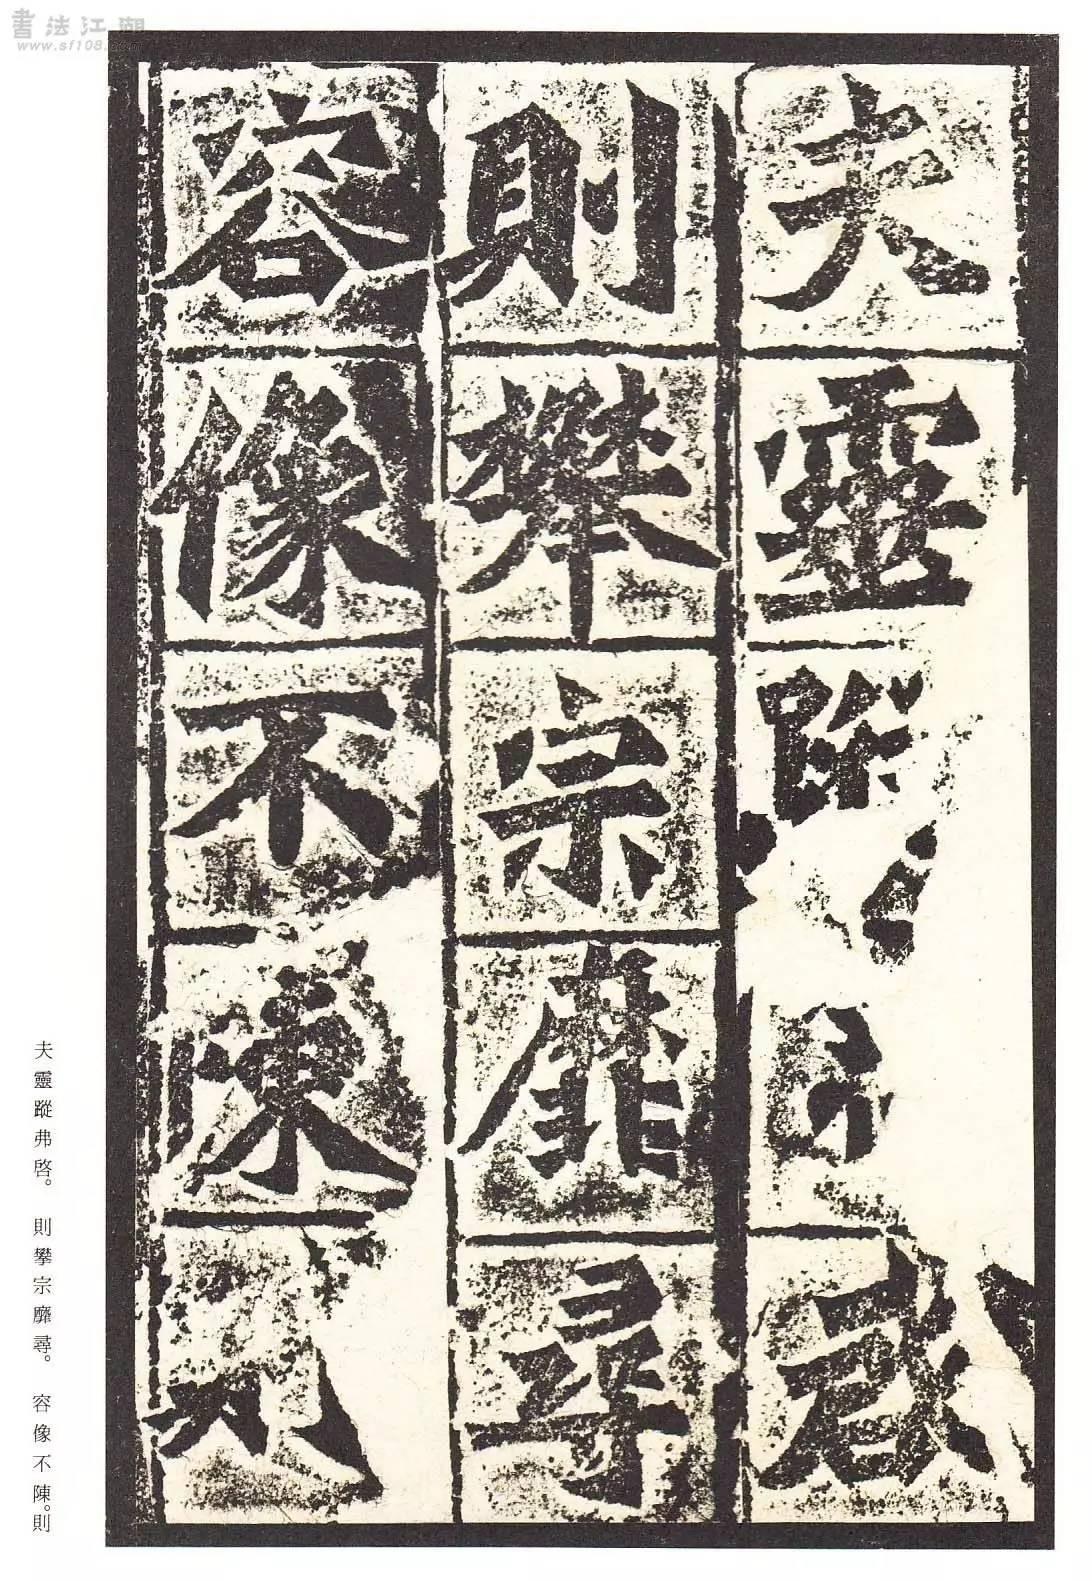 書法江湖
www.sf108.com
夫靈蹤弗啓
則攀宗靡尋
容像不陳則
夫靈蹤弗啓。則攀宗靡尋。容像不陳。則